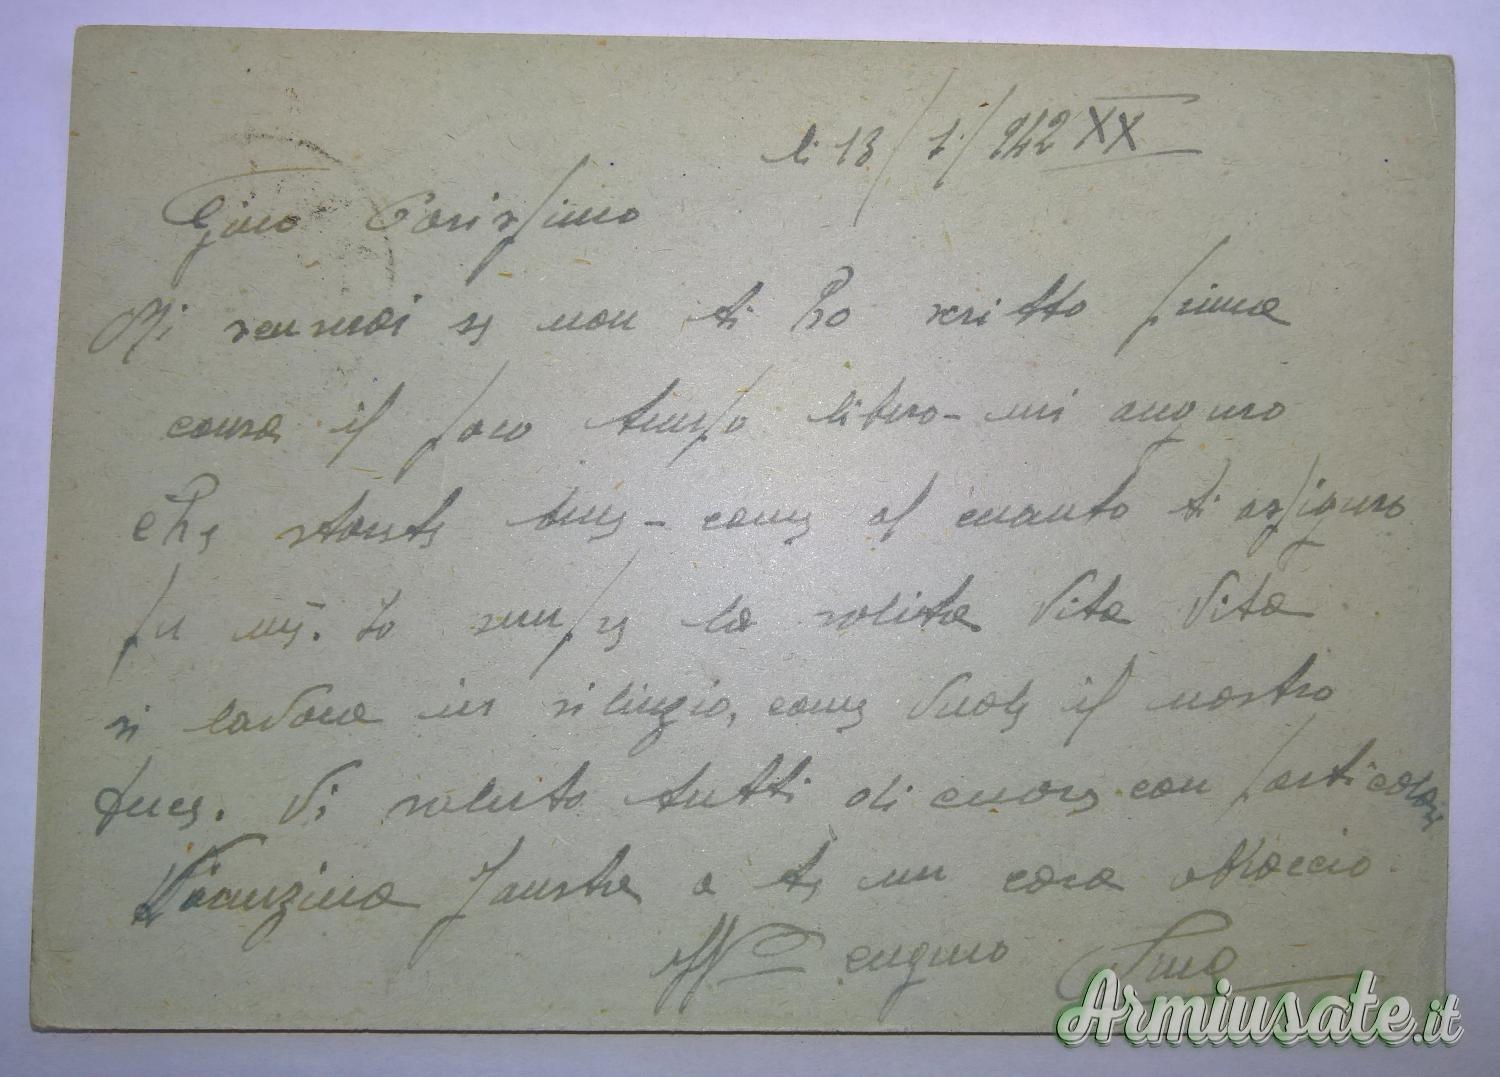 li 13/1/942 XX
Gino Carissimo
Mi scusrai se non ti ho scritto prima
causa il poco tempo libero - mi auguro
che starete bene - come al cuanto ti assiguro
per me. Io sempre la solita vita vita
si lavora in silenzio, come vuole il nostro
duce. Vi saluto tutti di cuore con particolare
Fausta a te un caro abbraccio
cugino
Armiusate.it